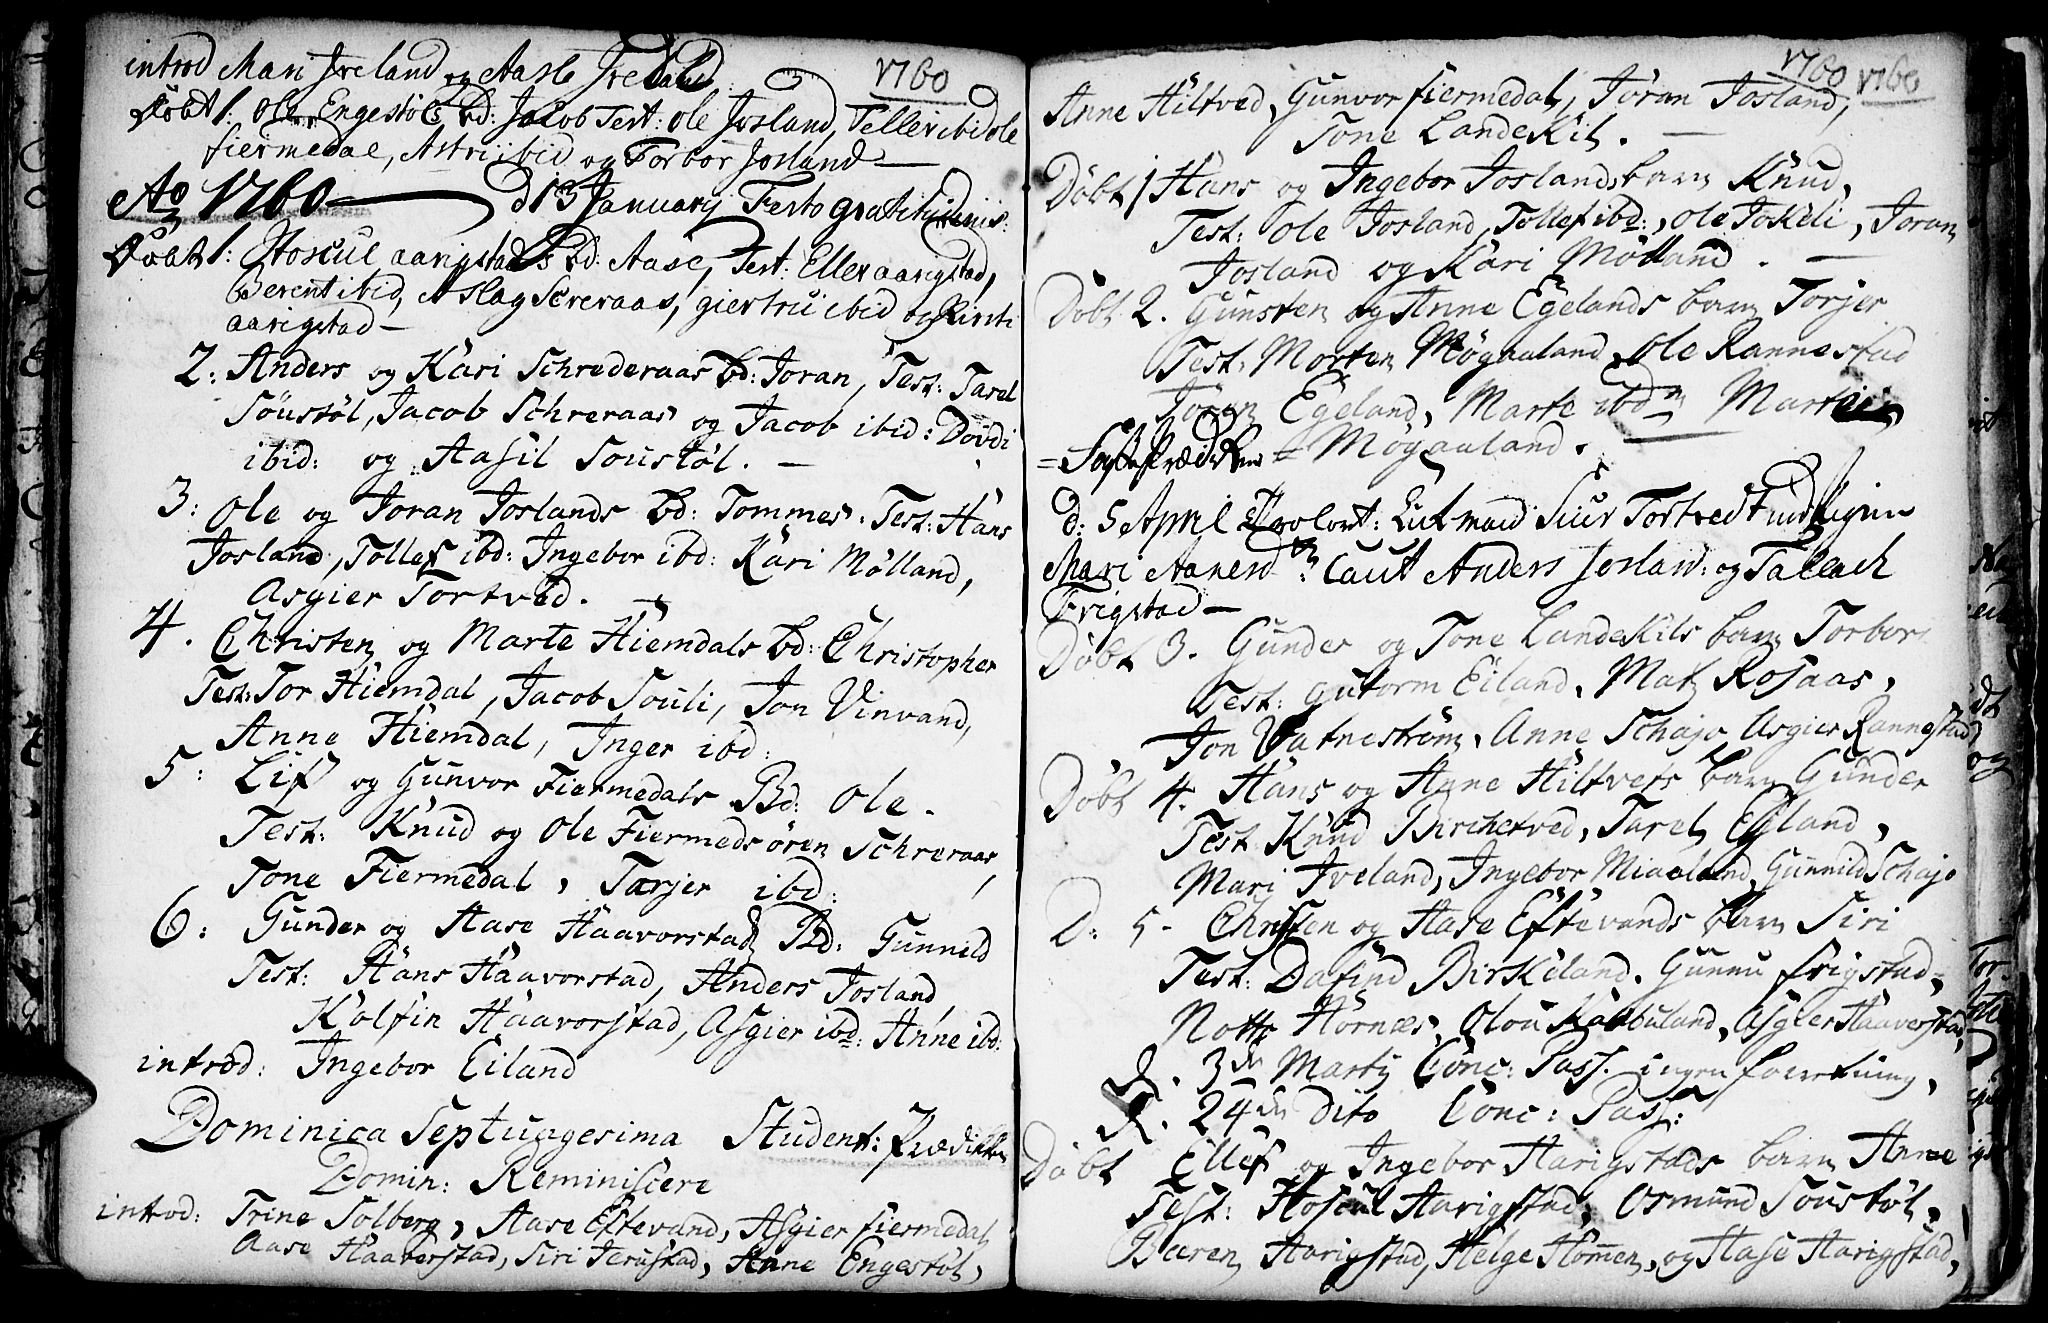 introd Mari Iveland og Aasle Iveland
1760
Döbt 1: Ole Engestöls bd: Jacob Test: Ole Josland, Tellev ibid Ole
fiermedal, Astri ibid og Torbor Josland —
Ao 1760 — d 13 January Festo gratitudinis:
Döbt 1: Hoscul aarigstads bd: Aase, Test: Ellev aarigstad,
Berent ibid, Aslag Screraas, giertru ibid og Kirsti
aarigstad —
2: Anders og Kari Schrederaas bd: Joran, Test: Tarel
Söustöl, Jacob Schreraas og Jacob ibid: Dovdi
ibid: og Aasil Soustöl. —
3: Ole og Joran Joslands bd: Tommes. Test: Hans
Josland, Tollef ibd: Ingebor ibd: Kari Mölland,
Asgier Tortved. —
4. Christen og Marte Hiemdals bd: Christopher
Test: Tor Hiemdal, Jacob Souli, Jon Vinvand,
Anne Hiemdal, Inger ibd:
5: Lif og Gunvor Fiermedals Bd: Ole.
Test: Knud og Ole Fiermedsören Schreraas,
Tone Fiermedal, Tarjer ibd:
6: Gunder og Aase Haavorstad Bd: Gunneld
Test: Hans Haavorstad, Anders Josland
Kolfin Haavorstad, Asgier ibd: Anne ibd:
introd: Ingebor Eiland
Dominica Septuagesima Student: Prædikken
Domin: Reminiscere
introd: Trine Solberg, Aase Eftevand, Asgier fiermedal
Aase Haaverstad, Siri Jerustad, Anne Engestöl,
1760 1760
Anne Hiltved, Gunvor fiermedal, Joran Josland,
Tone Landekil. —
Döbt 1 Hans og Ingebor Joslands barn Knud,
Test: Ole Josland, Tollef ibd:, Ole Jokeli, Joran
Josland og Kari Mölland. —
Döbt 2. Gunsten og Anne Egelands barn Torjer
Test: Morten Mögaaland, Ole Rannestad
Joran Egeland, Marte ibd
Mögaaland.
d: 5 April Trolovt: Siur Tortved
Mari caut Anders Josland: og Tallach
Frigstad —
Döbt 3. Gunder og Tone Landekils barn Torbor
Test: Gutorm Eiland, Matz Rosaas,
Jon Vatneström, Anne Schajo Asgier Rannestad
Döbt 4. Hans og Anne Hiltvets barn Gunder
Test Knud Birchetved, Tarel Egland,
Mari Iveland, Ingebor Miaeland, Gunnild Schajo
D: 5. Christen og Aase Eftevands barn Siri
Test: Dafind Birkeland. Gunnu frigstad,
Notto Hornæs, Olou Kaabuland, Asgier Haaverstad,
D. 3die Marty Conc: Pass. ingen forretning,
D. 24de dito Conc: Pass:
Döbt Ellef og Ingebor Aarigstads barn Anne
Test: Hoscul Aarigstad, Osmund Soustöl,
Baren Aarigstad, Helge Homen, og Aase Aarigstad,